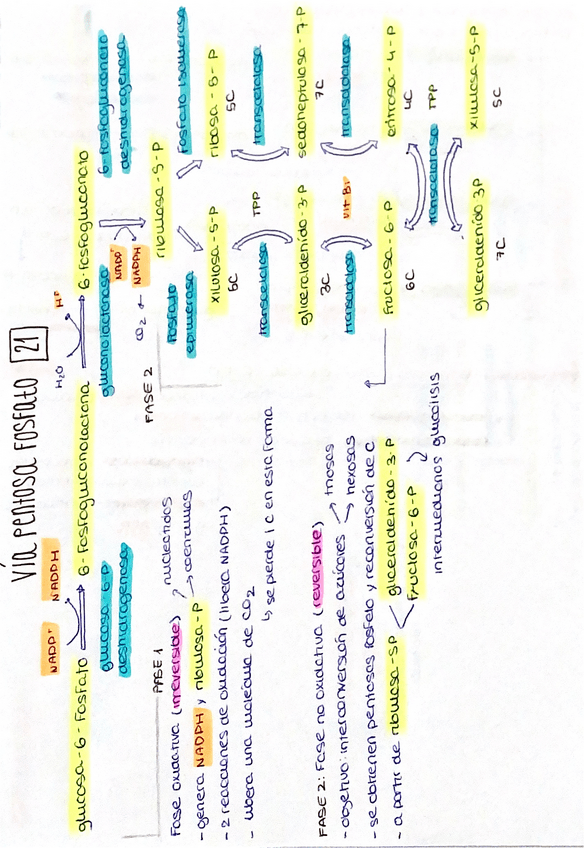 VÍA PENTOSA FOSFATO 21
NADP⁺ NADPH
H₂O H⁺
glucosa - 6 - Fosfato
6 - Fosfogluconolactona
6 - Fosfogluconato
glucosa - 6 - P
deshidrogenasa
gluconolactonasa
6 - Fosfogluconato
deshidrogenasa
NADP⁺
NADPH
CO₂
ribulosa - 5 - P
FASE 1
Fase oxidativa (irreversible)
- genera NADPH y ribulosa - P
nucleótidos
coenzimas
- 2 reacciones de oxidación (libera NADPH)
- libera una molécula de CO₂
↳ se pierde 1 C en esta forma
FASE 2
Fosfato
epimerasa
Fosfato isomerasa
xilulosa - 5 - P
5C
ribosa - 5 - P
5C
transcetolasa
TPP
transcetolasa
gliceraldehido - 3 - P
3C
sedoheptulosa - 7 - P
7C
transaldolasa
transaldolasa
Fructosa - 6 - P
6C
eritrosa - 4 - P
4C
transcetolasa
TPP
gliceraldehido 3P
7C
xilulosa - 5 - P
5C
FASE 2: Fase no oxidativa (reversible)
- objetivo: interconversión de azúcares
triosas
hexosas
- se obtienen pentosas fosfato y reconversión de C
- a partir de ribulosa - 5P
gliceraldehido - 3 - P
Fructosa - 6 - P
intermediarios glucolisis